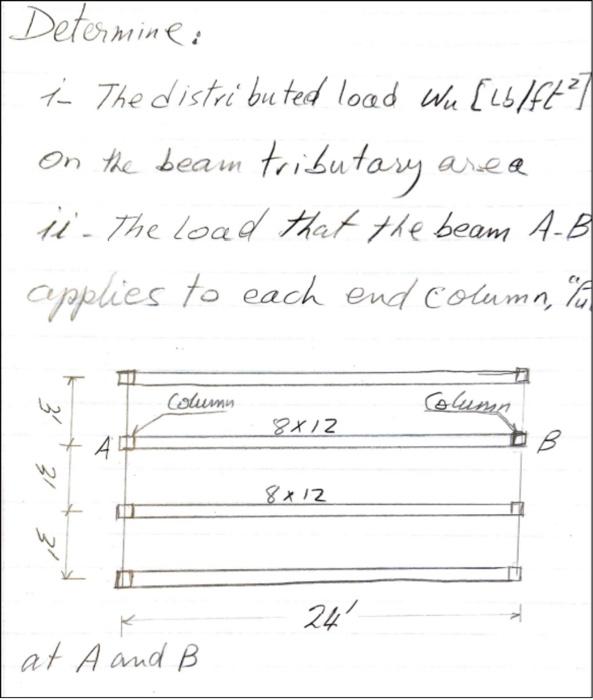 Determine:
i- The distributed load Wu [Lb/ft²]
on the beam tributary area
ii- The Load that the beam A-B
applies to each end column,
Column
Column
8x12
A
B
8x12
3'
3'
3'
24'
at A and B